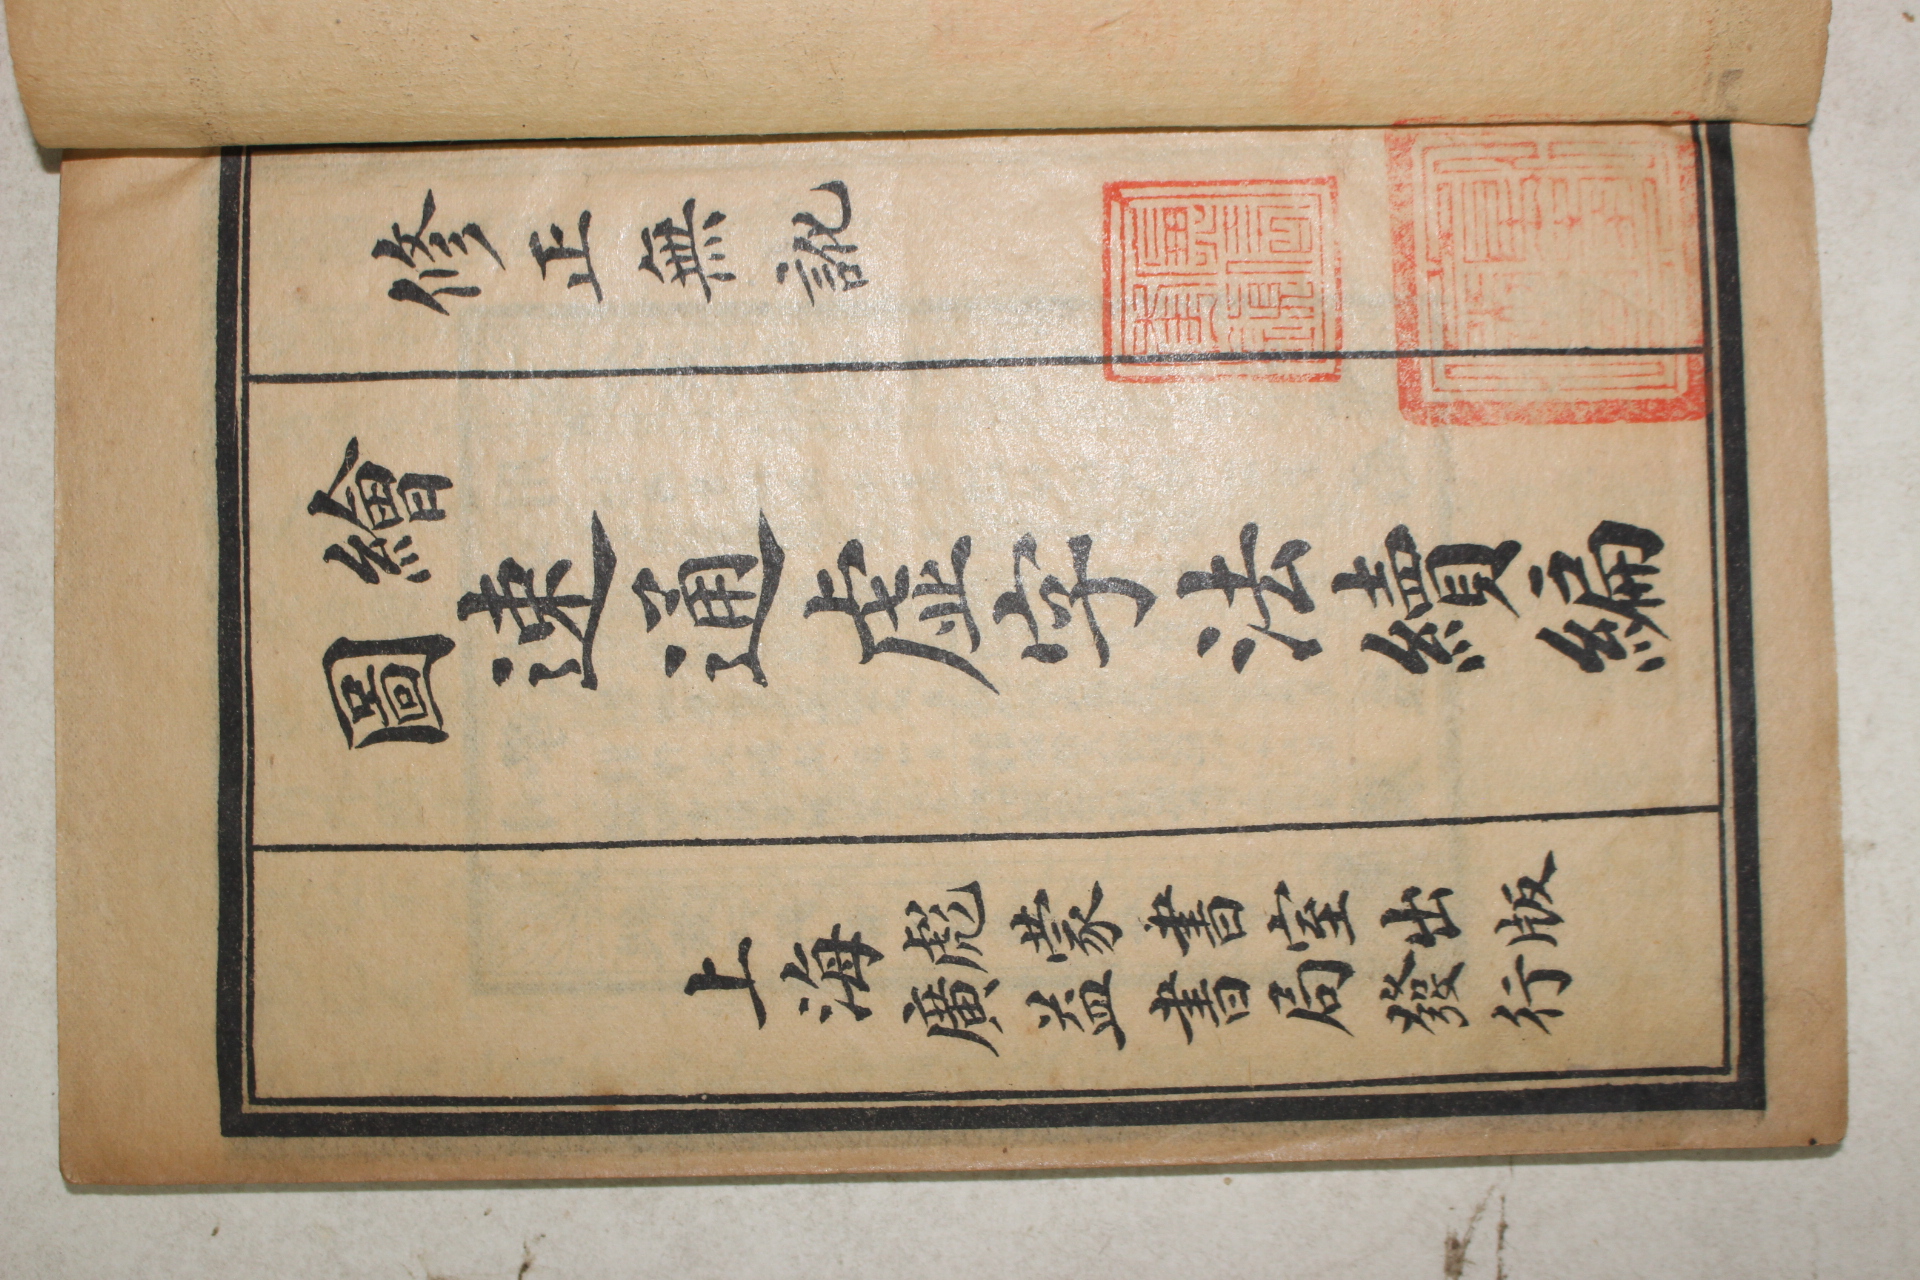 修正無訛
繪圖
速通虛字法續編
上海
彪蒙書室出版
廣益書局發行